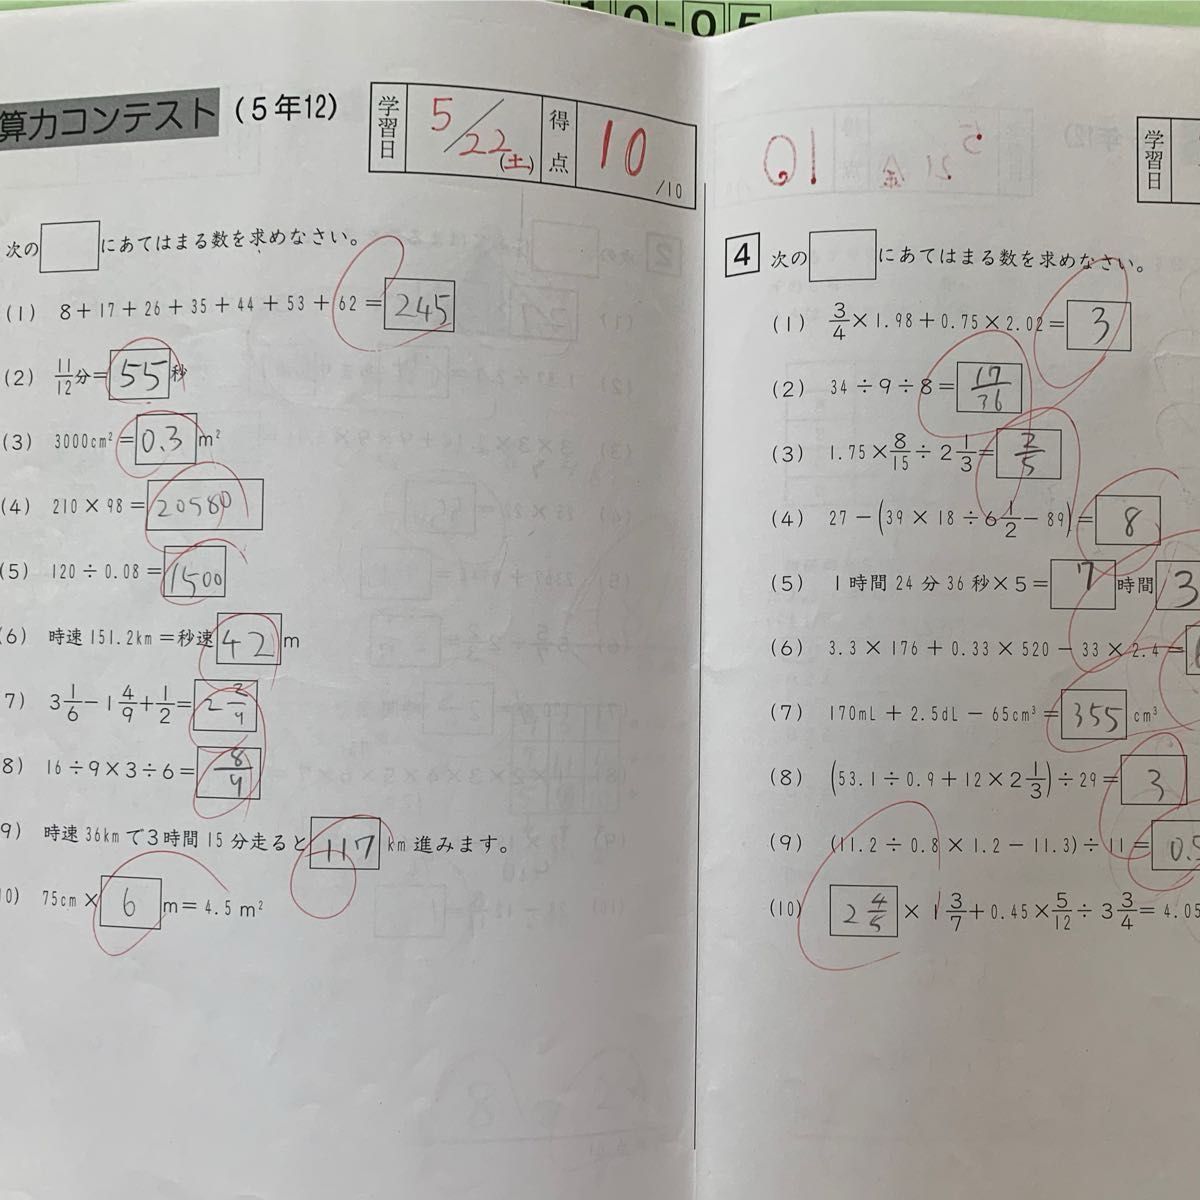 10-05
算力コンテスト (5年12)
学習日 5/22(土) 得点 10/10
次の□にあてはまる数を求めなさい。
(1) 8+17+26+35+44+53+62=245
(2) 11/12分=55秒
(3) 3000cm²=0.3m²
(4) 210×98=20580
(5) 120÷0.08=1500
(6) 時速151.2km=秒速42m
7) 3 1/6-1 4/9+1/2=2 2/9
8) 16÷9×3÷6=8/9
9) 時速36kmで3時間15分走ると117km進みます。
10) 75cm×6m=4.5m²
学習日
4 次の□にあてはまる数を求めなさい。
(1) 3/4×1.98+0.75×2.02=3
(2) 34÷9÷8=17/36
(3) 1.75×8/15÷2 1/3=2/5
(4) 27-(39×18÷6 1/2-89)=8
(5) 1時間24分36秒×5=7時間3
(6) 3.3×176+0.33×520-33×2.4=
(7) 170mL+2.5dL-65cm³=355cm³
(8) (53.1÷0.9+12×2 1/3)÷29=3
(9) (11.2÷0.8×1.2-11.3)÷11=0.5
(10) 2 4/5×1 3/7+0.45×5/12÷3 3/4=4.05